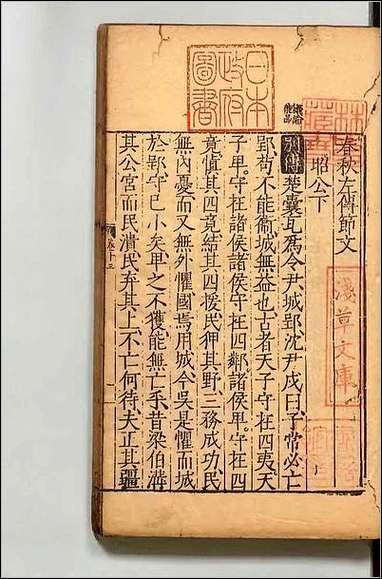 春秋左傳節文
昭公下
左傳楚囊瓦爲令尹城郢沈尹戌曰子常必亡
郢苟不能衞城無益也古者天子守在四夷天
子卑守在諸侯諸侯守在四鄰諸侯卑守在四
竟愼其四竟結其四援民狎其野三務成功民
無內憂而又無外懼國焉用城今吳是懼而城
於郢守已小矣卑之不獲能無亡乎昔梁伯溝
其公宮而民潰民弃其上不亡何待夫正其疆
日本
政府
圖書
淺草文庫
林氏
藏書